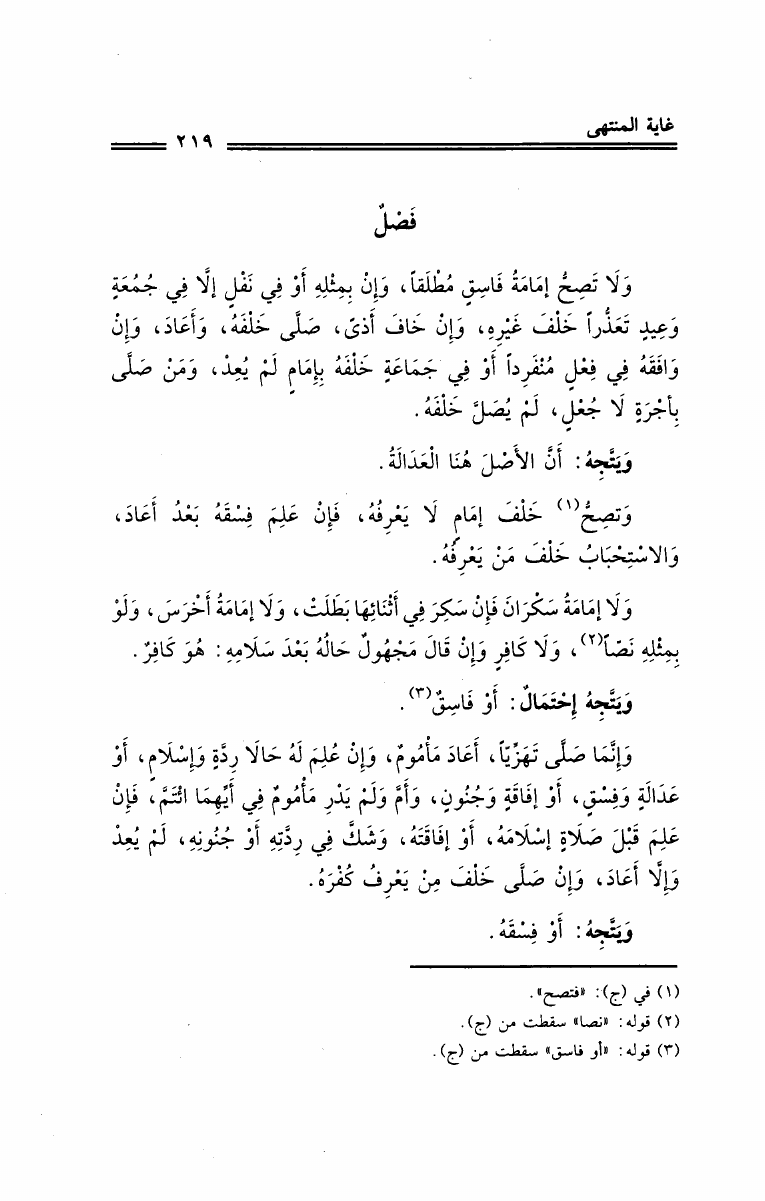 غاية المنتهى
٢١٩
فَصْلٌ
وَلَا تَصِحُّ إمَامَةُ فَاسِقٍ مُطْلَقاً، وَإِنْ بِمِثْلِهِ أَوْ فِي نَفْلٍ إلَّا فِي جُمُعَةٍ
وَعِيدٍ تَعَذُّراً خَلْفَ غَيْرِهِ، وَإِنْ خَافَ أَذىً، صَلَّى خَلْفَهُ، وَأَعَادَ، وَإِنْ
وَافَقَهُ فِي فِعْلٍ مُنْفَرِداً أَوْ فِي جَمَاعَةٍ خَلْفَهُ بِإِمَامٍ لَمْ يُعِدْ، وَمَنْ صَلَّى
بِأُجْرَةٍ لَا جُعْلٍ، لَمْ يُصَلَّ خَلْفَهُ.
وَيَتَّجِهُ: أَنَّ الأَصْلَ هُنَا الْعَدَالَةُ.
وَتصِحُّ(١) خَلْفَ إمَامٍ لَا يَعْرِفُهُ، فَإِنْ عَلِمَ فِسْقَهُ بَعْدُ أَعَادَ،
وَالاسْتِحْبَابُ خَلْفَ مَنْ يَعْرِفُهُ.
وَلَا إمَامَةُ سَكْرَانَ فَإِنْ سَكِرَ فِي أَثْنَائِهَا بَطَلَتْ، وَلَا إمَامَةُ أَخْرَسَ، وَلَوْ
بِمِثْلِهِ نَصّاً(٢)، وَلَا كَافِرٍ وَإِنْ قَالَ مَجْهُولٌ حَالُهُ بَعْدَ سَلَامِهِ: هُوَ كَافِرٌ.
وَيَتَّجِهُ إِحْتَمَالٌ: أَوْ فَاسِقٌ(٣).
وَإِنَّمَا صَلَّى تَهَزِّيّاً، أَعَادَ مَأْمُومٌ، وَإِنْ عُلِمَ لَهُ حَالَا رِدَّةٍ وَإِسْلَامٍ، أَوْ
عَدَالَةٍ وَفِسْقٍ، أَوْ إفَاقَةٍ وَجُنُونٍ، وَأَمَّ وَلَمْ يَدْرِ مَأْمُومٌ فِي أَيِّهِمَا ائْتَمَّ، فَإِنْ
عَلِمَ قَبْلَ صَلَاةٍ إسْلَامَهُ، أَوْ إفَاقَتَهُ، وَشَكَّ فِي رِدَّتِهِ أَوْ جُنُونِهِ، لَمْ يُعِدْ
وَإِلَّا أَعَادَ، وَإِنْ صَلَّى خَلْفَ مِنْ يَعْرِفُ كُفْرَهُ.
وَيَتَّجِهُ: أَوْ فِسْقَهُ.
(١) في (ج): «فتصح».
(٢) قوله: «نصا» سقطت من (ج).
(٣) قوله: «أو فاسق» سقطت من (ج).